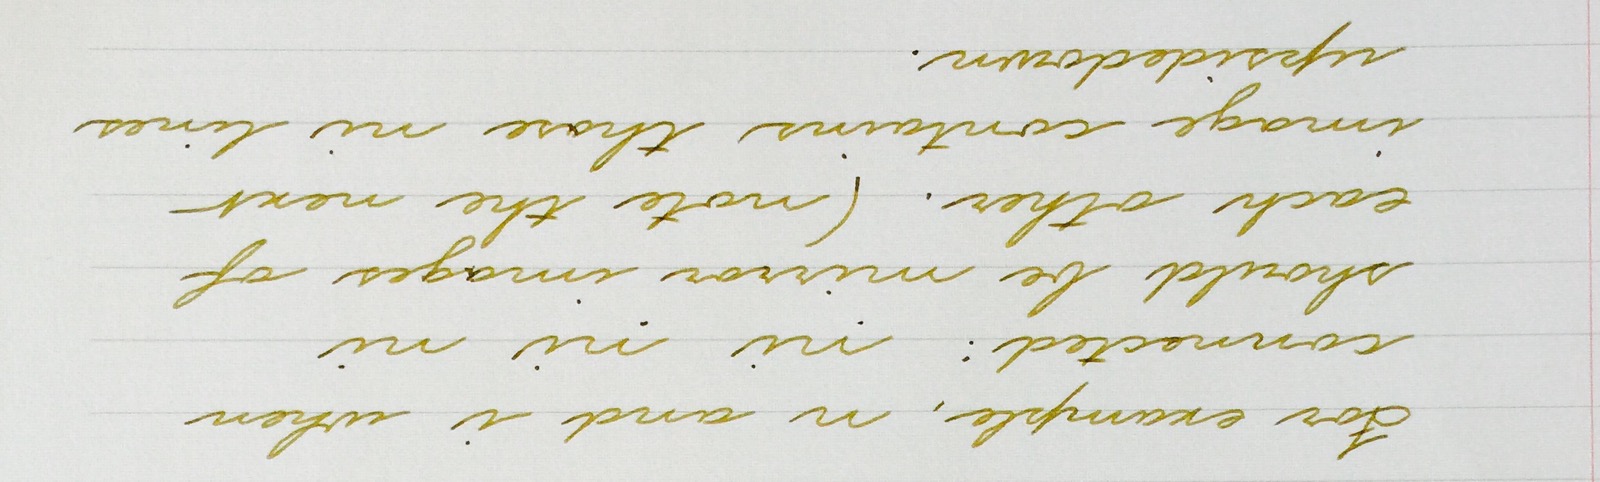 For example, n and i when
connected: ni ni ni
should be mirror images of
each other. (note the next
image contains those ni lines
upsidedown.